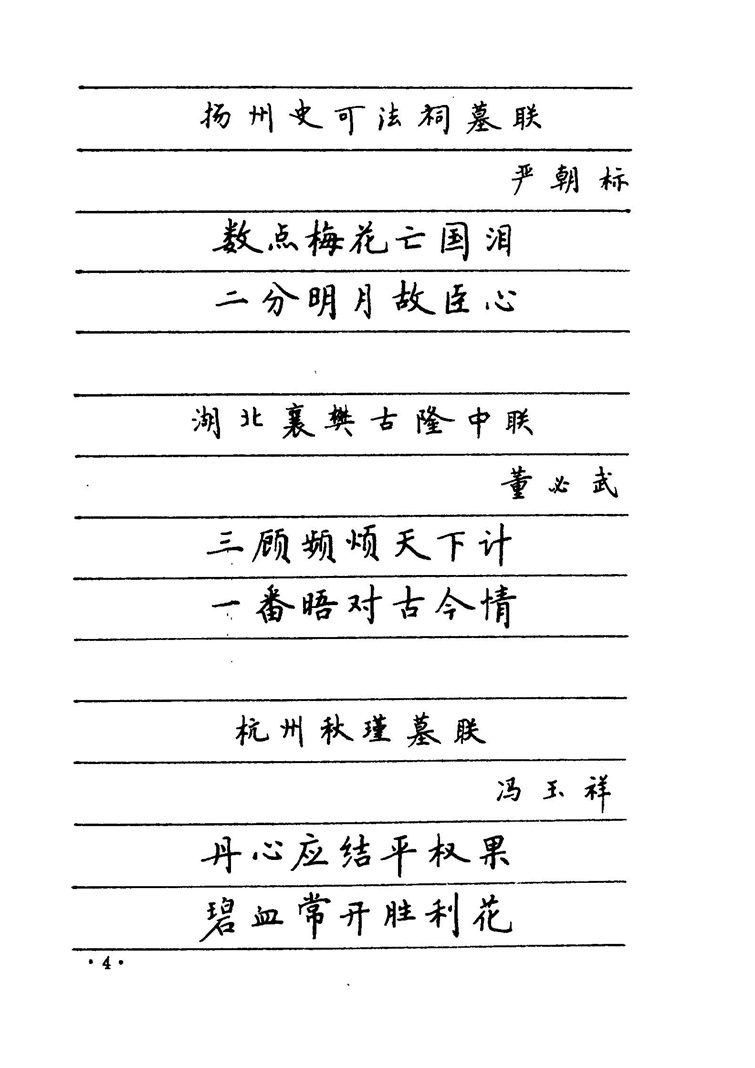 扬州史可法祠墓联
严朝标
数点梅花亡国泪
二分明月故臣心
湖北襄樊古隆中联
董必武
三顾频烦天下计
一番晤对古今情
杭州秋瑾墓联
冯玉祥
丹心应结平权果
碧血常开胜利花
·4·